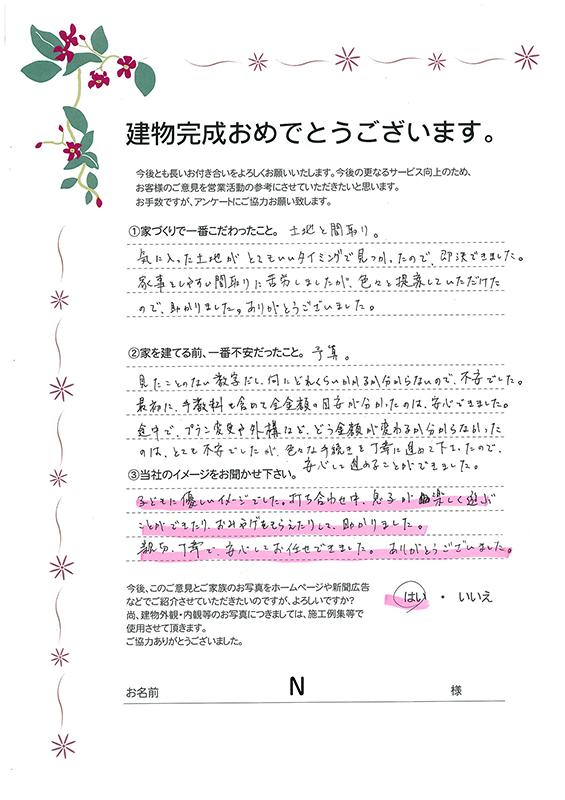 建物完成おめでとうございます。
今後とも長いお付き合いをよろしくお願いいたします。今後の更なるサービス向上のため、
お客様のご意見を営業活動の参考にさせていただきたいと思います。
お手数ですが、アンケートにご協力お願い致します。
①家づくりで一番こだわったこと。 土地と間取り。
気に入った土地が とてもいいタイミングで見つかったので、即決できました。
家事をしやすい間取りに苦労しましたが、色々と提案していただけた
ので、助かりました。ありがとうございました。
②家を建てる前、一番不安だったこと。 予算。
見たことのない数字だし、何にどれくらいかかるか分からないので、不安でした。
最初に、手数料も含めて全金額の目安が分かったのは、安心できました。
途中で、プラン変更や外構など、どう金額が変わるか分からなかった
のは、とても不安でしたが、色々な手続きを丁寧に進めて下さったので、
安心して進めることができました。
③当社のイメージをお聞かせ下さい。
子どもに優しいイメージでした。打ち合わせ中、息子が 楽しく遊ぶ
ことができたり、おみやげをもらえたりして、助かりました。
親切、丁寧で、安心してお任せできました。ありがとうございました。
今後、このご意見とご家族のお写真をホームページや新聞広告
などでご紹介させていただきたいのですが、よろしいですか? はい ・ いいえ
尚、建物外観・内観等のお写真につきましては、施工例集等で
使用させて頂きます。
ご協力ありがとうございました。
お名前 N 様